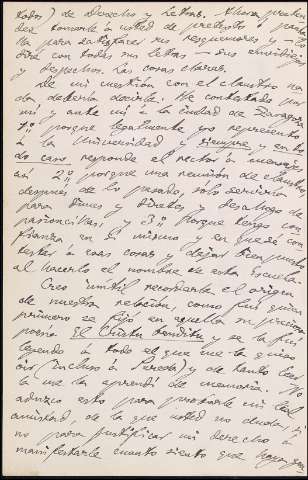 todos) de Derecho y Letras. Ahora preten-
der tomarle á usted de pretexto ó pante-
lla para satisfacer sus resquemores y lo
diré con todas sus letras — sus envidias
y despechos. Las cosas claras.
De mi cuestión con el claustro na-
da debería decirle. He contestado por
mí y ante mí á la ciudad de Zaragoza
1º porque legalmente yo represento
á la Universidad y siempre y en to-
do caso responde el rector á mensajes
así 2º porque una reunión de claustro
después de lo pasado, solo serviría
para dimes y diretes y desahogo de
pasioncillas, y 3º porque tengo con-
fianza en mí mismo y en que sé con-
testar á esas cosas y dejar bien puesto
al hacerlo el nombre de esta Escuela.
Creo inútil recordarle el origen
de nuestra relación, como fuí quien
primero se fijó en aquella su preciosa
poesía El Cristu benditu y se la fuí
leyendo á todo el que me la quiso
oir (incluso á Pereda) y de tanto leer-
la me la aprendí de memoria. No
aduzco esto para probarle mi leal
amistad, de la que usted no duda, si
no para justificar mi derecho á
manifestarle cuanto siento que hayan